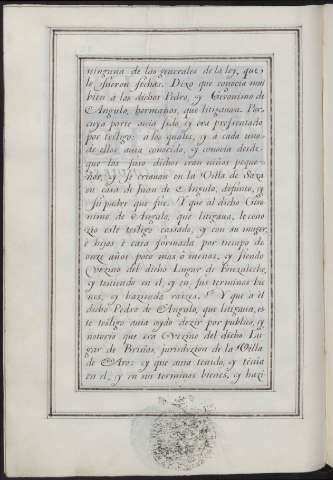 ninguna de las generales de la ley, que
lo fueron fechas. Dixo que conocia mui
bien a los dichos Pedro, y Geronimo de
Angulo, hermanos, que litigavan. Por
cuya parte avia sido, y era presentado
por testigo: a los quales, y a cada uno
de ellos avia conocido, y conocia desde
que los suso dichos eran niños peque
ños, y se criavan en la Villa de
en casa de Juan de Angulo, defunto, y
su padre que fue. Y que al dicho Gero
nimo de Angulo, que litigava, le cono
zio este testigo cassado, y con su muger,
è hijos è casa formada por tiempo de
onze años poco mas ò menos, y siendo
Vezino del dicho Lugar de Fonzaleche,
y teniendo en el, y en sus terminos bie
nes, y hazienda raizes. Y que a el
dicho Pedro de Angulo, que litigava, es
te testigo avia oydo dezir por publico, y
notorio que era Vezino del dicho Lu
gar de Briñas, jurisdizion de la Villa
de Aro: y que avia tenido, y tenia
en el, y en sus terminos bienes, y hazi